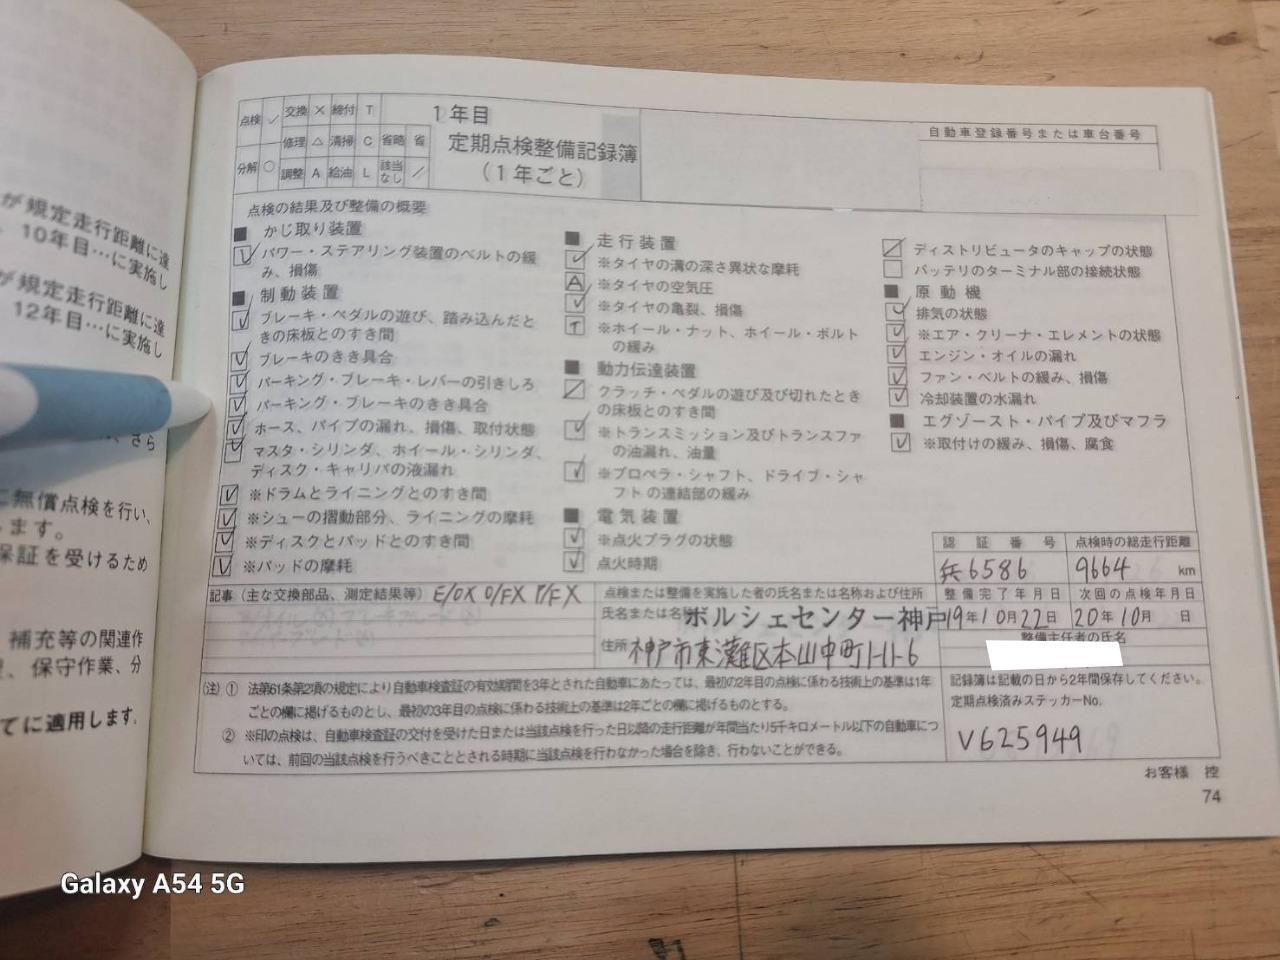 が規定走行距離に達
10年目…に実施し
が規定走行距離に達
12年目…に実施し
さら
に無償点検を行い、
ます。
保証を受けるため
補充等の関連作
、保守作業、分
てに適用します。
点検 ✓ 交換 × 締付 T
修理 △ 清掃 C 省略 省
分解 ○ 調整 A 給油 L 該当なし ／
1年目
定期点検整備記録簿
(1年ごと)
自動車登録番号または車台番号
点検の結果及び整備の概要
■ かじ取り装置
パワー・ステアリング装置のベルトの緩
み、損傷
■ 制動装置
ブレーキ・ペダルの遊び、踏み込んだと
きの床板とのすき間
ブレーキのきき具合
パーキング・ブレーキ・レバーの引きしろ
パーキング・ブレーキのきき具合
ホース、パイプの漏れ、損傷、取付状態
マスタ・シリンダ、ホイール・シリンダ、
ディスク・キャリパの液漏れ
※ドラムとライニングとのすき間
※シューの摺動部分、ライニングの摩耗
※ディスクとパッドとのすき間
※パッドの摩耗
■ 走行装置
※タイヤの溝の深さ異状な摩耗
A ※タイヤの空気圧
※タイヤの亀裂、損傷
T ※ホイール・ナット、ホイール・ボルト
の緩み
■ 動力伝達装置
クラッチ・ペダルの遊び及び切れたとき
の床板とのすき間
※トランスミッション及びトランスファ
の油漏れ、油量
※プロペラ・シャフト、ドライブ・シャ
フトの連結部の緩み
■ 電気装置
※点火プラグの状態
点火時期
ディストリビュータのキャップの状態
バッテリのターミナル部の接続状態
■ 原動機
排気の状態
※エア・クリーナ・エレメントの状態
エンジン・オイルの漏れ
ファン・ベルトの緩み、損傷
冷却装置の水漏れ
■ エグゾースト・パイプ及びマフラ
※取付けの緩み、損傷、腐食
記事(主な交換部品、測定結果等) E/OX O/FX P/FX
点検または整備を実施した者の氏名または名称および住所
氏名または名称 ポルシェセンター神戸
住所 神戸市東灘区本山中町1-11-6
認証番号 点検時の総走行距離
兵6586 9664 km
整備完了年月日 次回の点検年月日
19年10月22日 20年10月 日
整備主任者の氏名
記録簿は記載の日から2年間保存してください。
定期点検済みステッカーNo.
V625949
(注) ① 法第61条第2項の規定により自動車検査証の有効期間を3年とされた自動車にあたっては、最初の2年目の点検に係わる技術上の基準は1年
ごとの欄に掲げるものとし、最初の3年目の点検に係わる技術上の基準は2年ごとの欄に掲げるものとする。
② ※印の点検は、自動車検査証の交付を受けた日または当該点検を行った日以降の走行距離が年間当たり5千キロメートル以下の自動車につ
いては、前回の当該点検を行うべきこととされる時期に当該点検を行わなかった場合を除き、行わないことができる。
お客様 控
74
Galaxy A54 5G